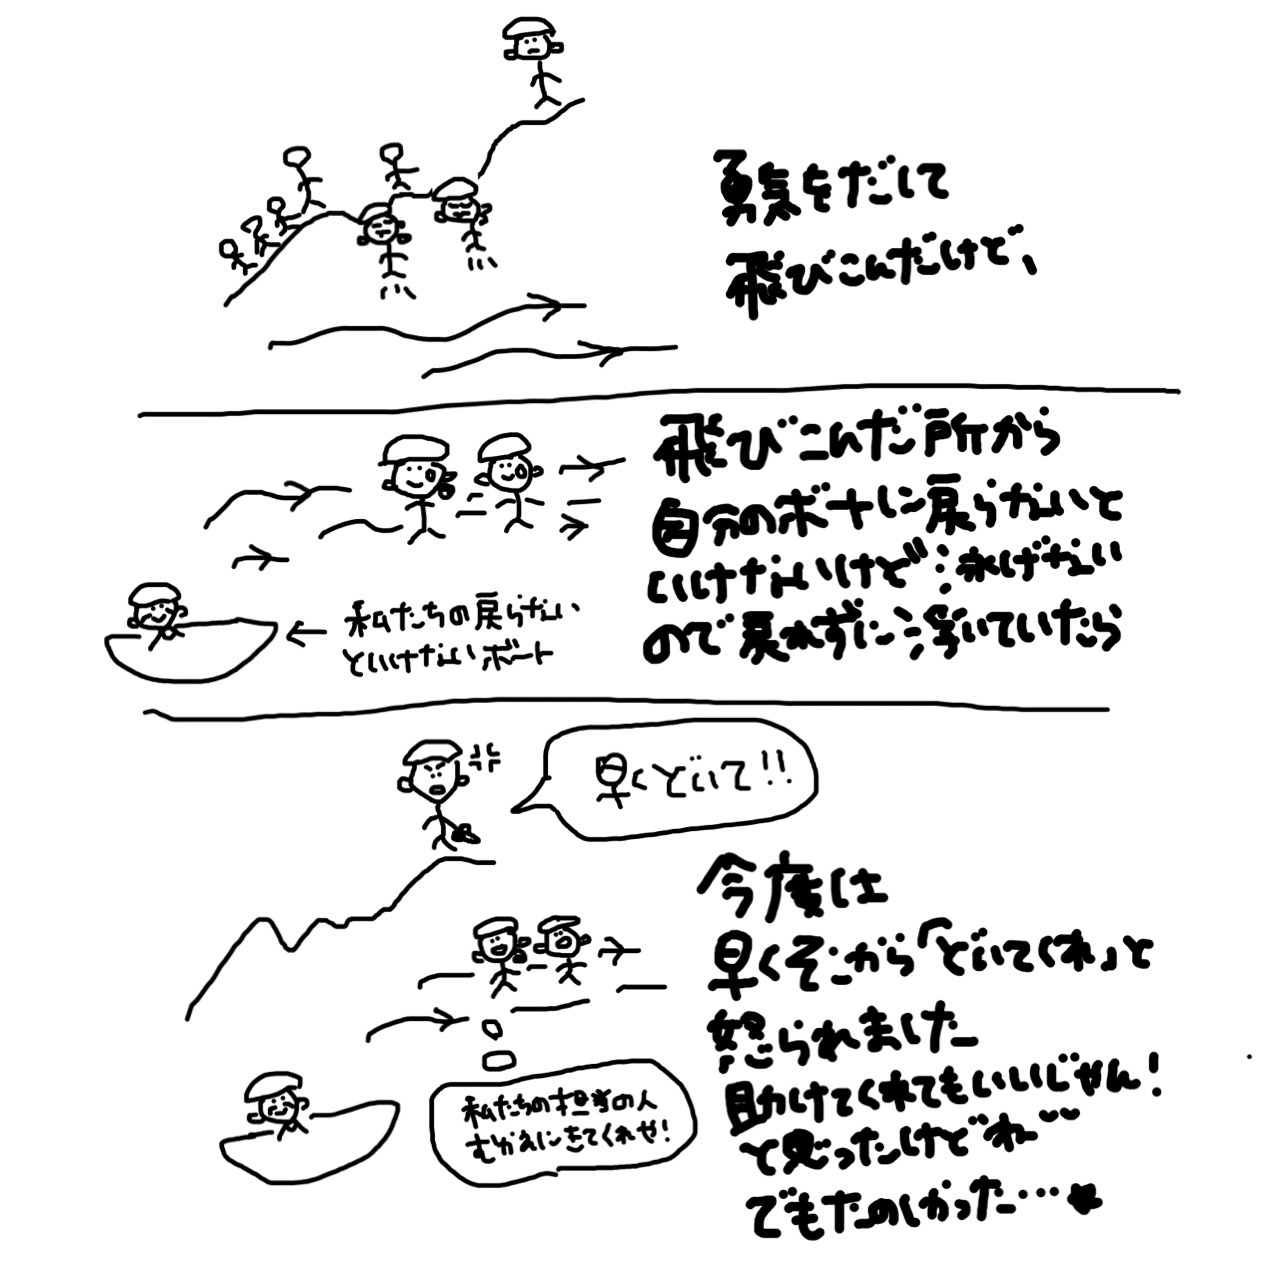 勇気をだして
飛びこんだけど、
飛びこんだ所から
自分のボートに戻らないと
いけないけど泳げない
ので戻れずに浮いていたら
私たちの戻らない
といけないボート
早くどいて!!
今度は
早くそこから「どいてくれ」と
怒られました
助けてくれてもいいじゃん!
と思ったけどね
でもたのしかった…★
私たちの担当の人
むかえにきてくれや!